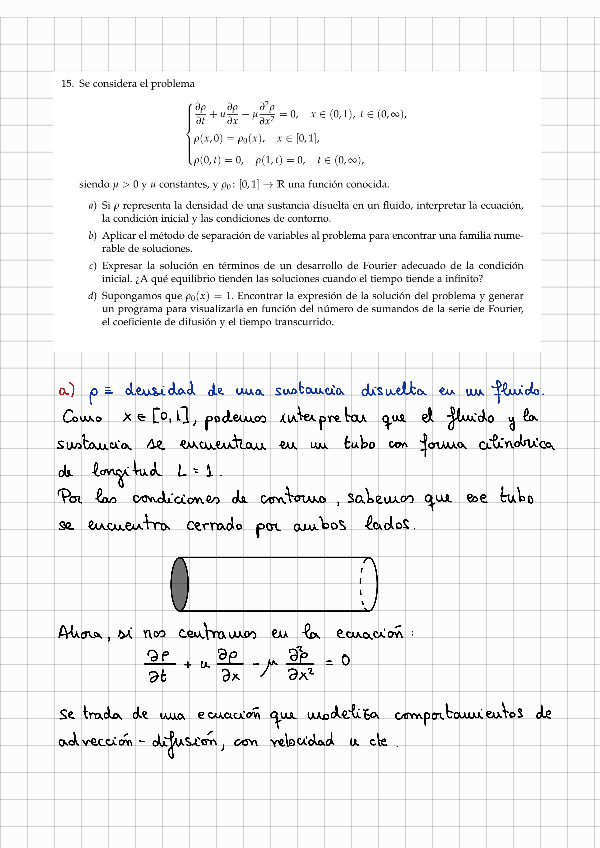 15. Se considera el problema
∂ρ/∂t + u ∂ρ/∂x − μ ∂²ρ/∂x² = 0, x ∈ (0, 1), t ∈ (0, ∞),
ρ(x, 0) = ρ₀(x), x ∈ [0, 1],
ρ(0, t) = 0, ρ(1, t) = 0, t ∈ (0, ∞),
siendo μ > 0 y u constantes, y ρ₀ : [0, 1] → ℝ una función conocida.
a) Si ρ representa la densidad de una sustancia disuelta en un fluido, interpretar la ecuación,
la condición inicial y las condiciones de contorno.
b) Aplicar el método de separación de variables al problema para encontrar una familia nume-
rable de soluciones.
c) Expresar la solución en términos de un desarrollo de Fourier adecuado de la condición
inicial. ¿A qué equilibrio tienden las soluciones cuando el tiempo tiende a infinito?
d) Supongamos que ρ₀(x) = 1. Encontrar la expresión de la solución del problema y generar
un programa para visualizarla en función del número de sumandos de la serie de Fourier,
el coeficiente de difusión y el tiempo transcurrido.
a) ρ ≡ densidad de una sustancia disuelta en un fluido.
Como x ∈ [0,1], podemos interpretar que el fluido y la
sustancia se encuentran en un tubo con forma cilíndrica
de longitud L = 1.
Por las condiciones de contorno, sabemos que ese tubo
se encuentra cerrado por ambos lados.
Ahora, si nos centramos en la ecuación:
∂ρ/∂t + u ∂ρ/∂x − μ ∂²ρ/∂x² = 0
se trada de una ecuación que modeliza comportamientos de
advección - difusión, con velocidad u cte.